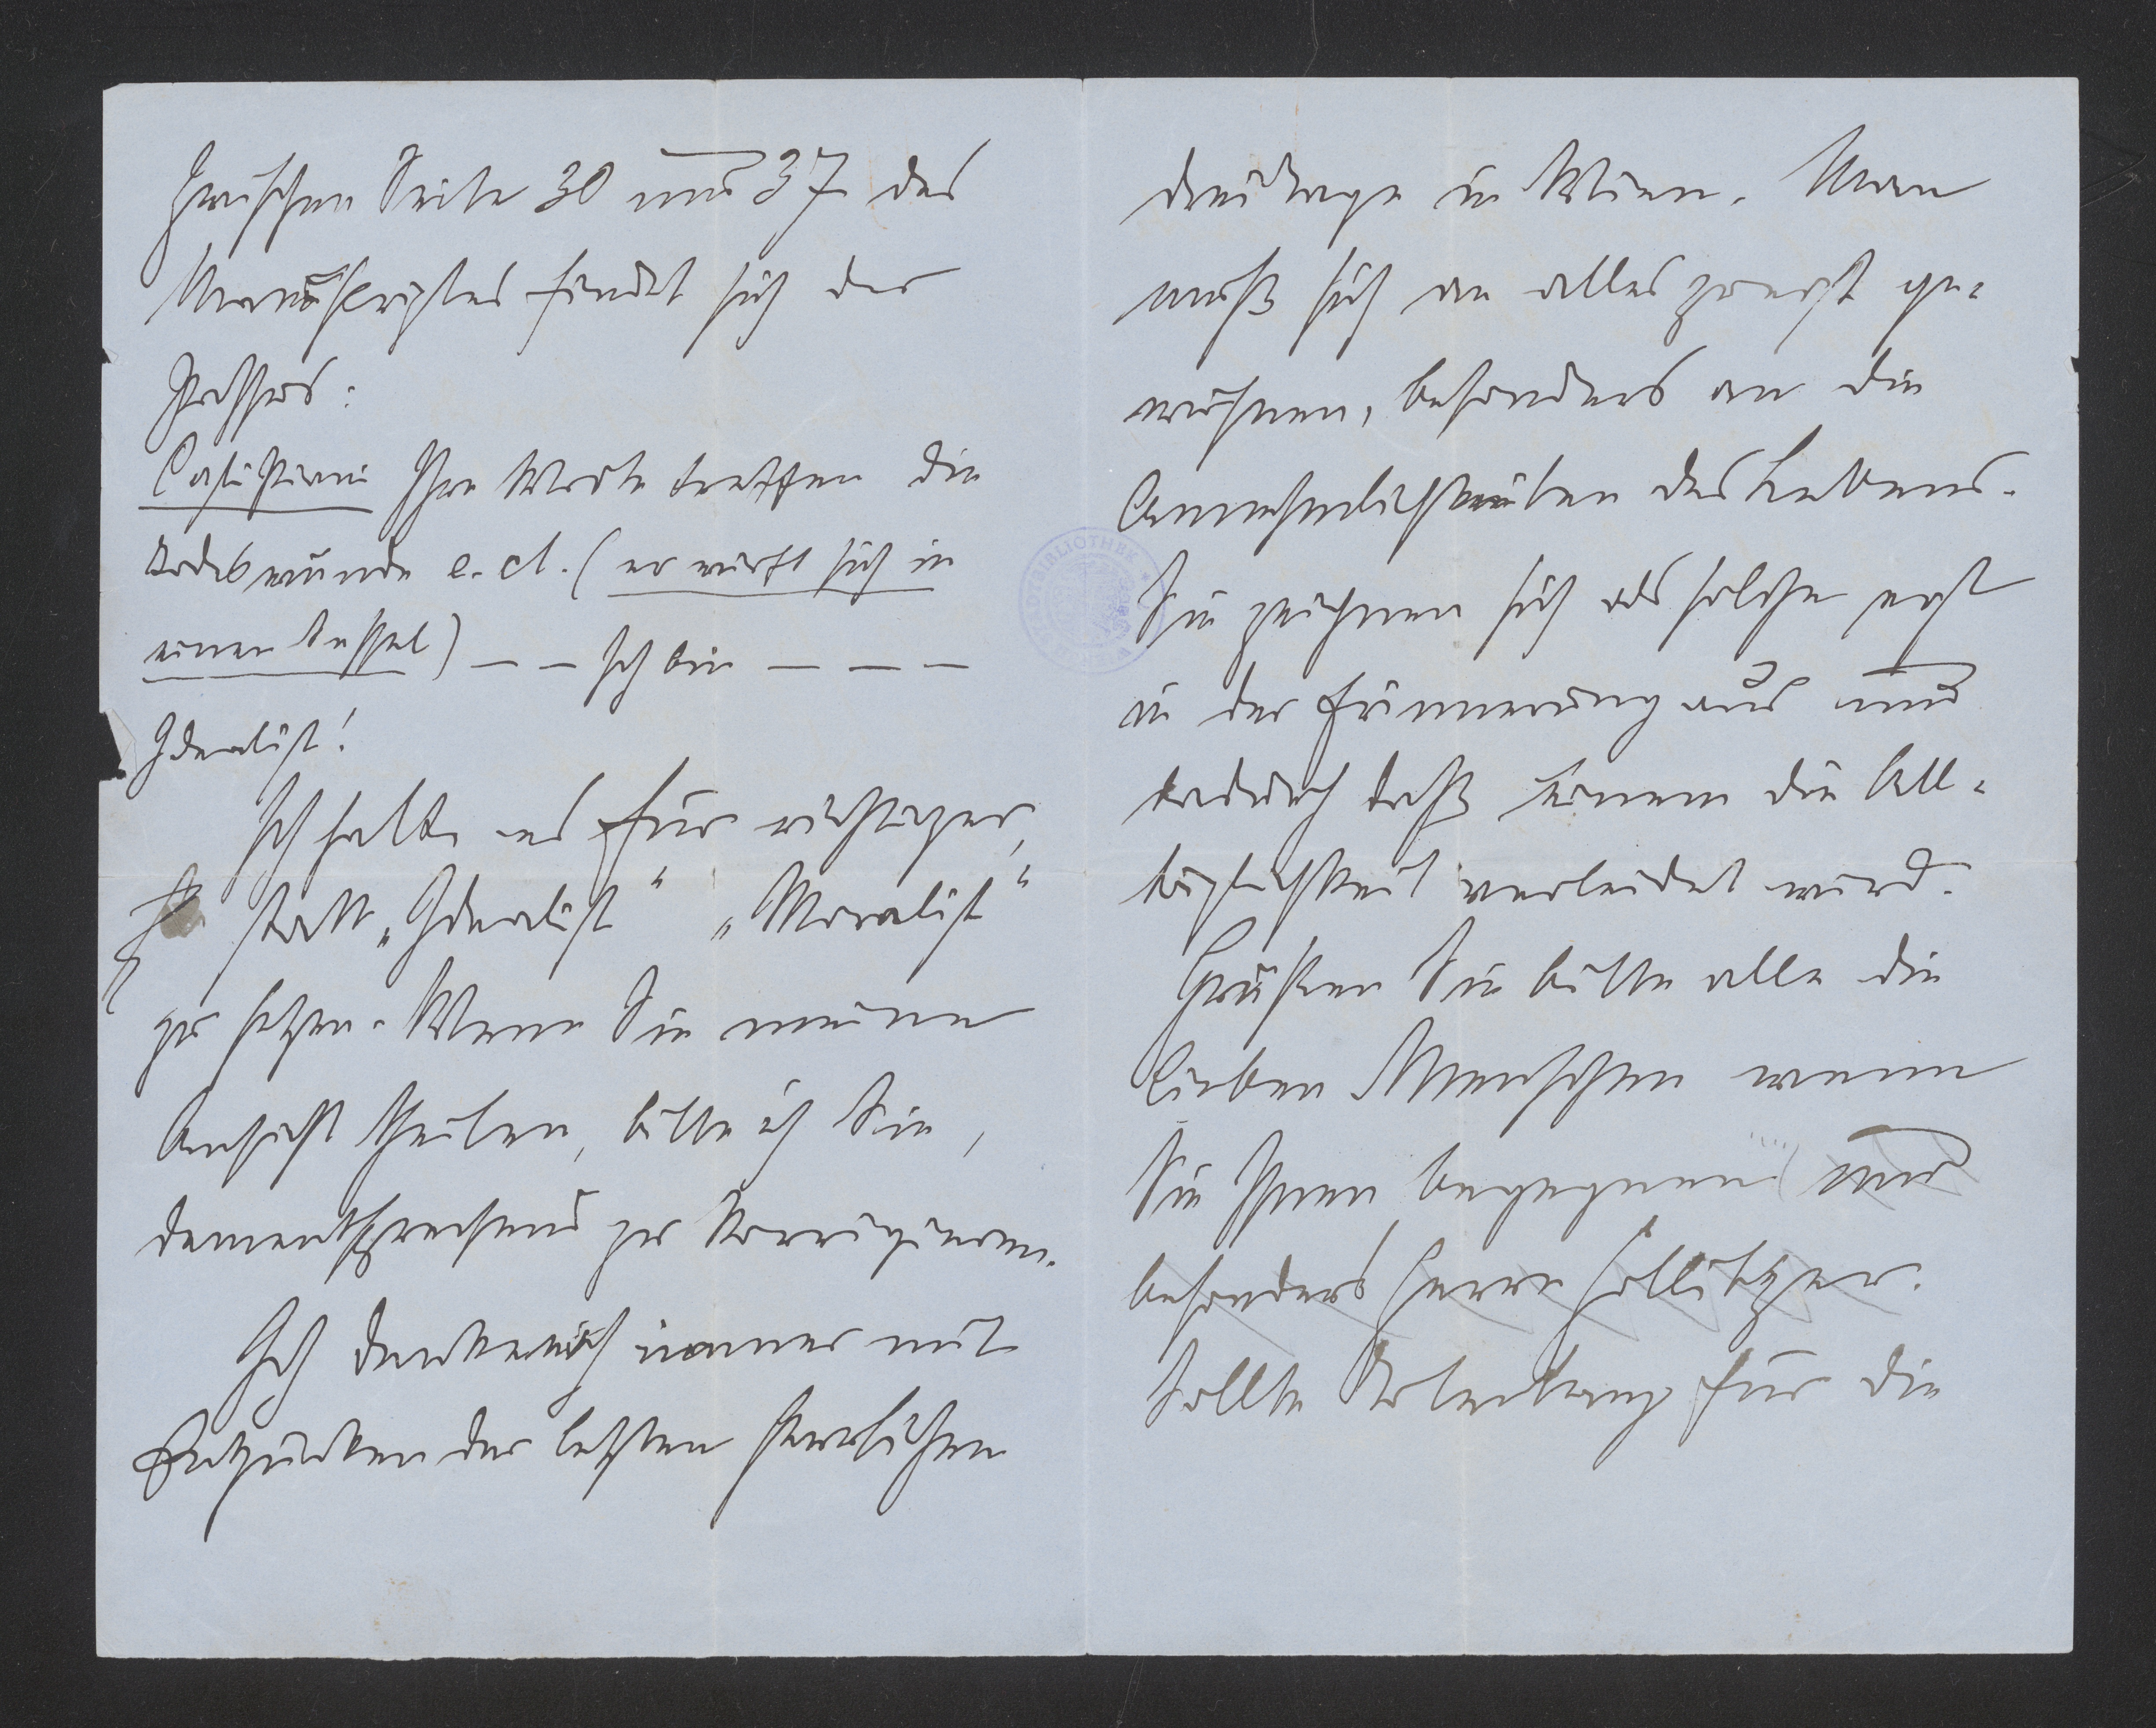 Zwischen Seite 30 und 37 des
Manuskriptes findet sich der
Passus:
Casti Piani Ihre Worte treffen die
Todeswunde e. ct. (er wirft sich in
einen Sessel) – – Ich bin – – –
Idealist!
Ich halte es für richtiger,
statt „Idealist" „Moralist"
zu setzen. Wenn Sie meine
Ansicht theilen, bitte ich Sie,
dementsprechend zu korrigieren.
Ich denke noch immer mit
Entzücken der letzten herrlichen
drei Tage in Wien. Man
muß sich an alles zuerst ge-
wöhnen, besonders an die
Annehmlichkeiten des Lebens.
Sie zeichnen sich als solche erst
in der Erinnerung aus und
dadurch daß Einem die All-
täglichkeit verleidet wird.
Grüßen Sie bitte alle die
lieben Menschen wenn
Sie Ihnen begegnen und
besonders Herrn Hollitzer.
Sollte Totentanz für die
STADTBIBLIOTHEK